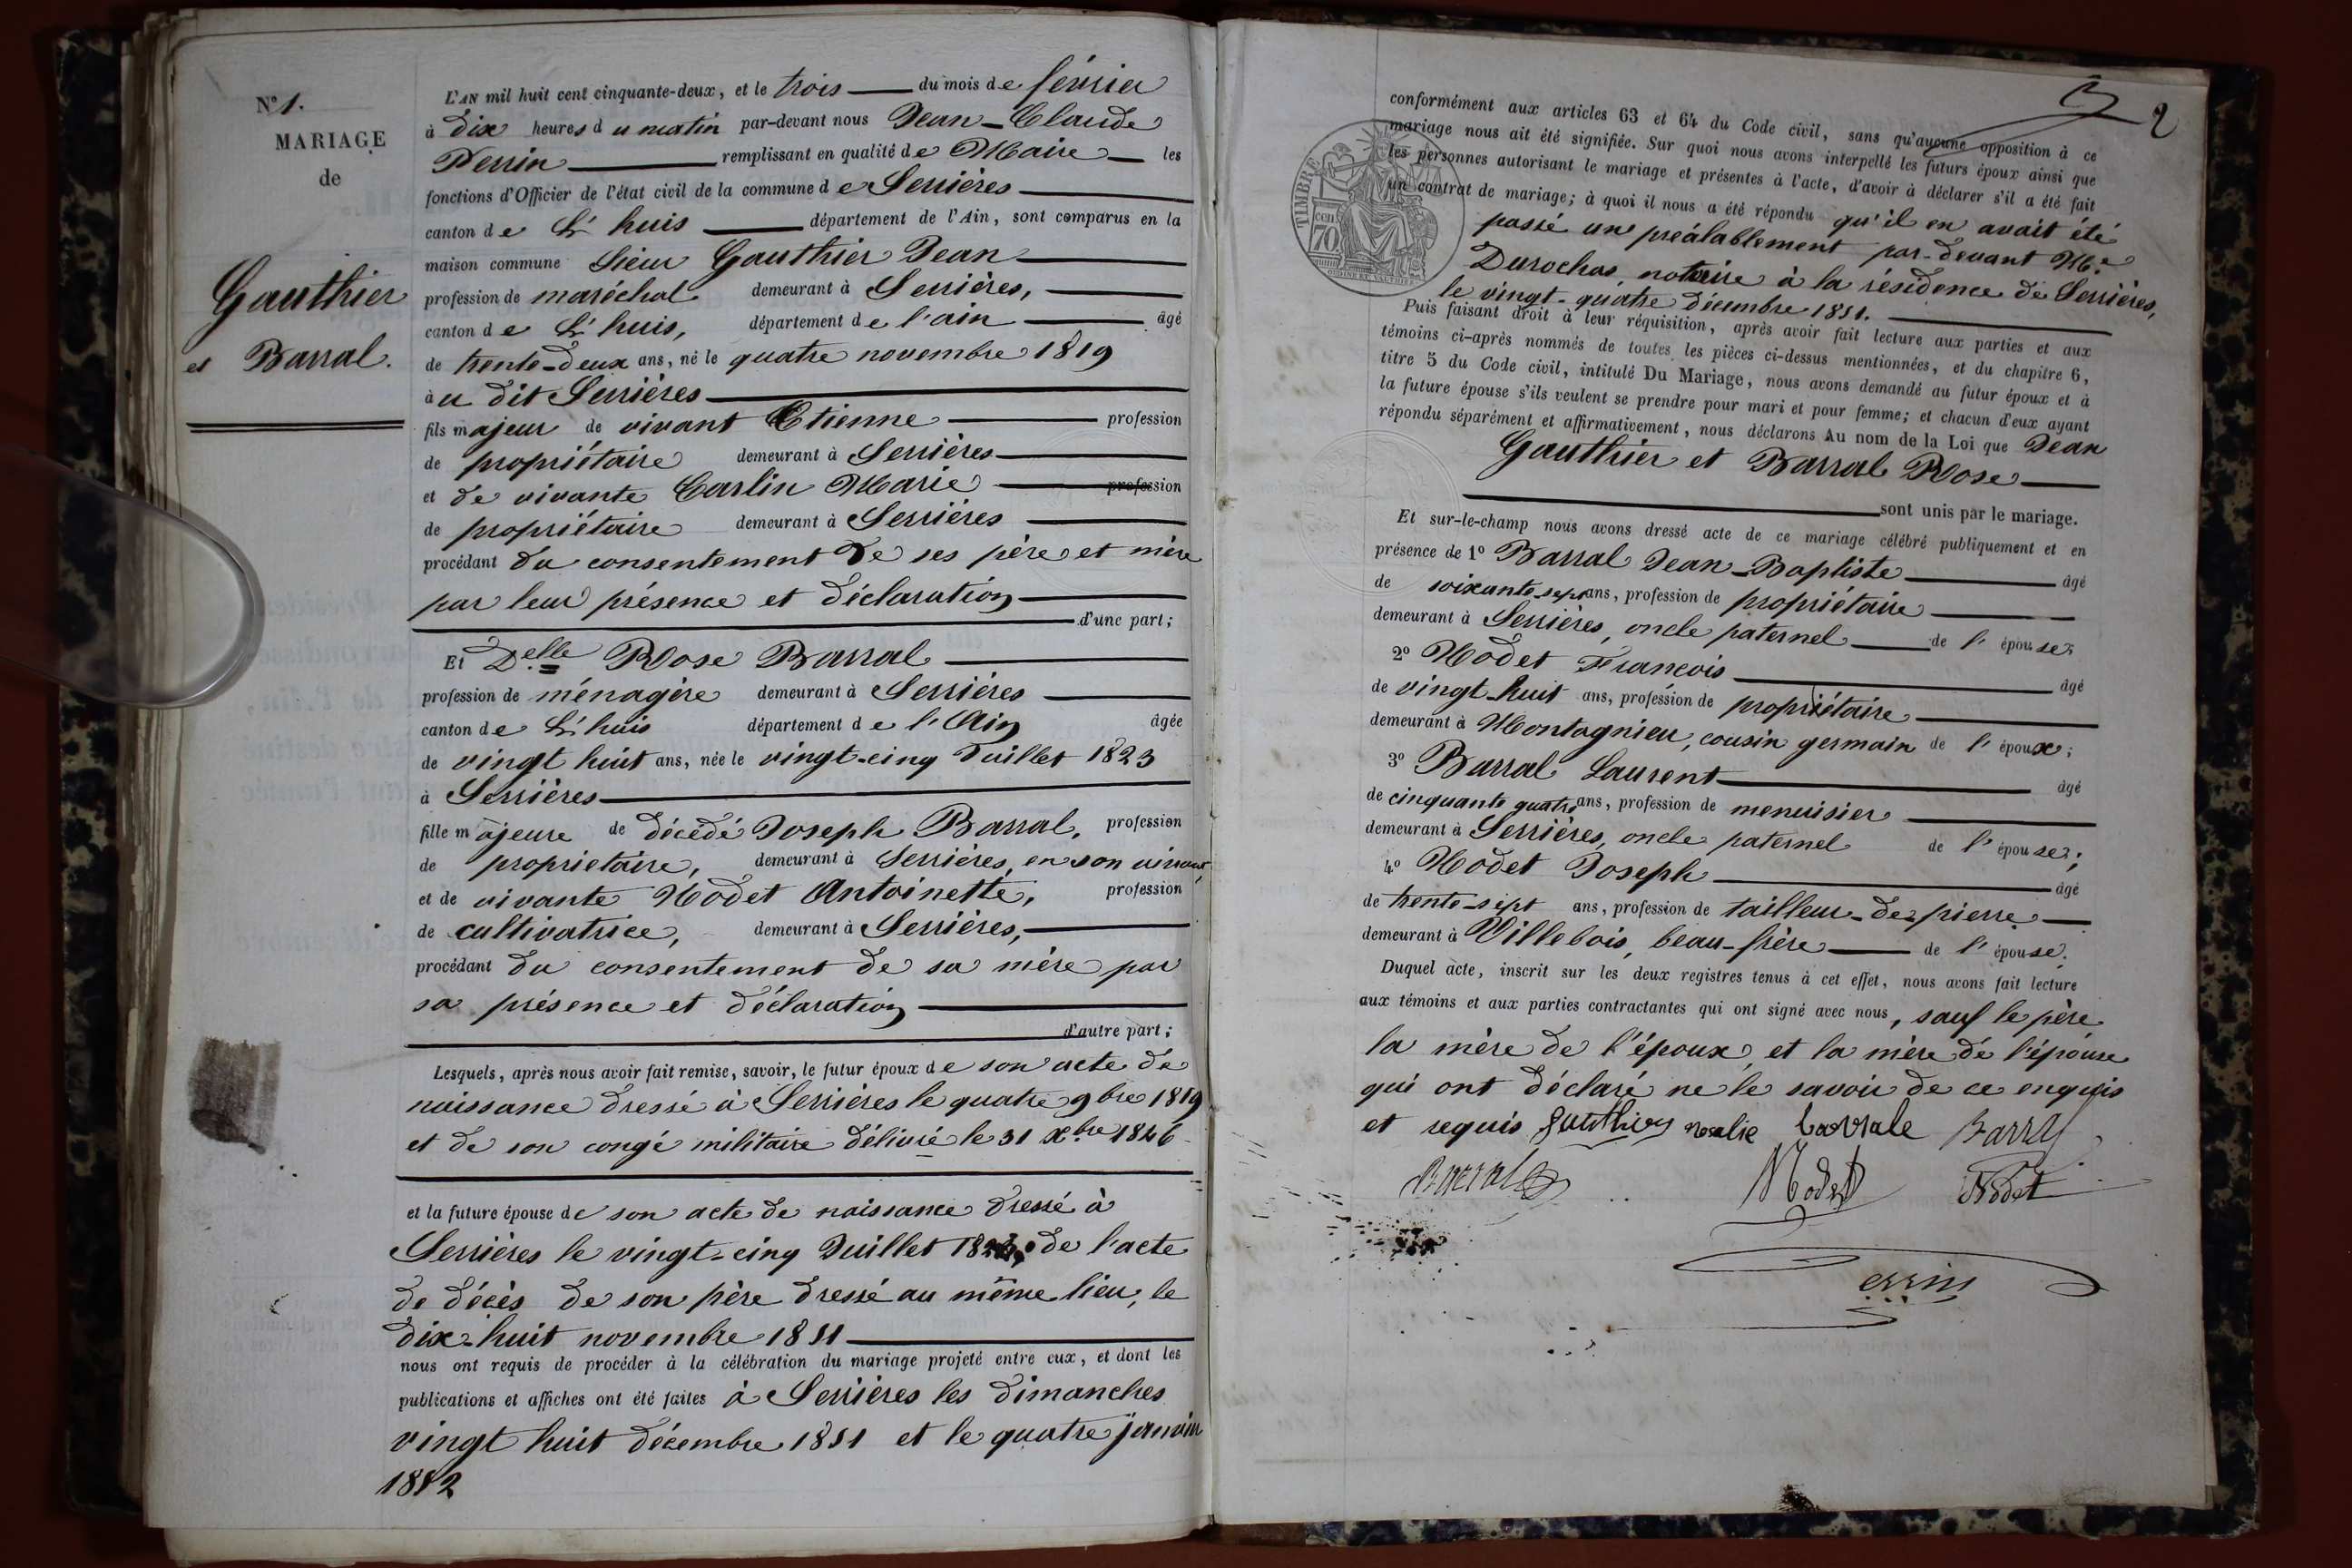 N° 1.
MARIAGE
de
Gauthier
et Barral.
L'AN mil huit cent cinquante-deux, et le trois du mois de février
à dix heures du matin par-devant nous Jean-Claude
Perrin remplissant en qualité de Maire les
fonctions d'Officier de l'état civil de la commune de Serrières
canton de L'huis département de l'Ain, sont comparus en la
maison commune Sieur Gauthier Jean
profession de maréchal demeurant à Serrières,
canton de L'huis, département de l'ain âgé
de trente-deux ans, né le quatre novembre 1819
à u dit Serrières
fils majeur de vivant Etienne profession
de propriétaire demeurant à Serrières
et de vivante Carlin Marie profession
de propriétaire demeurant à Serrières
procédant du consentement de ses père et mère
par leur présence et déclaration
d'une part;
Et Delle Rose Barral
profession de ménagère demeurant à Serrières
canton de L'huis département de l'Ain âgée
de vingt huit ans, née le vingt-cinq Juillet 1823
à Serrières
fille majeure de décédé Joseph Barral, profession
de proprietaire, demeurant à Serrières, en son vivant,
et de vivante Nodet Antoinette, profession
de cultivatrice, demeurant à Serrières,
procédant du consentement de sa mère par
sa présence et déclaration
d'autre part;
Lesquels, après nous avoir fait remise, savoir, le futur époux de son acte de
naissance dressé à Serrières le quatre 9bre 1819
et de son congé militaire délivré le 31 Xbre 1846
et la future épouse de son acte de naissance dressé à
Serrières le vingt-cinq Juillet de l'acte
de décès de son père dressé au même lieu, le
dix-huit novembre 1851
nous ont requis de procéder à la célébration du mariage projeté entre eux, et dont les
publications et affiches ont été faites à Serrières les dimanches
vingt huit décembre 1851 et le quatre janvier
1852
2
conformément aux articles 63 et 64 du Code civil, sans qu'aucune opposition à ce
mariage nous ait été signifiée. Sur quoi nous avons interpellé les futurs époux ainsi que
les personnes autorisant le mariage et présentes à l'acte, d'avoir à déclarer s'il a été fait
un contrat de mariage; à quoi il nous a été répondu qu'il en avait été
passé un préalablement par-devant Me
Durochas notaire à la résidence de Serrières,
le vingt-quatre décembre 1851.
TIMBRE
70
Puis faisant droit à leur réquisition, après avoir fait lecture aux parties et aux
témoins ci-après nommés de toutes les pièces ci-dessus mentionnées, et du chapitre 6,
titre 5 du Code civil, intitulé Du Mariage, nous avons demandé au futur époux et à
la future épouse s'ils veulent se prendre pour mari et pour femme; et chacun d'eux ayant
répondu séparément et affirmativement, nous déclarons Au nom de la Loi que Jean
Gauthier et Barral Rose
sont unis par le mariage.
Et sur-le-champ nous avons dressé acte de ce mariage célébré publiquement et en
présence de 1° Barral Jean-Baptiste âgé
de soixante-sept ans, profession de propriétaire
demeurant à Serrières, oncle paternel de l'épouse;
2° Nodet François âgé
de vingt-huit ans, profession de propriétaire
demeurant à Montagnieu, cousin germain de l'époux;
3° Barral Laurent âgé
de cinquante quatre ans, profession de menuisier
demeurant à Serrières, oncle paternel de l'épouse;
4° Nodet Joseph âgé
de trente-sept ans, profession de tailleur-de-pierre
demeurant à Villebois, beau-frère de l'épouse.
Duquel acte, inscrit sur les deux registres tenus à cet effet, nous avons fait lecture
aux témoins et aux parties contractantes qui ont signé avec nous, sauf le père
la mère de l'époux, et la mère de l'épouse
qui ont déclaré ne le savoir de ce enquis
et requis Gauthier rosalie barrale Barral
Barral Nodet Nodet
Perrin